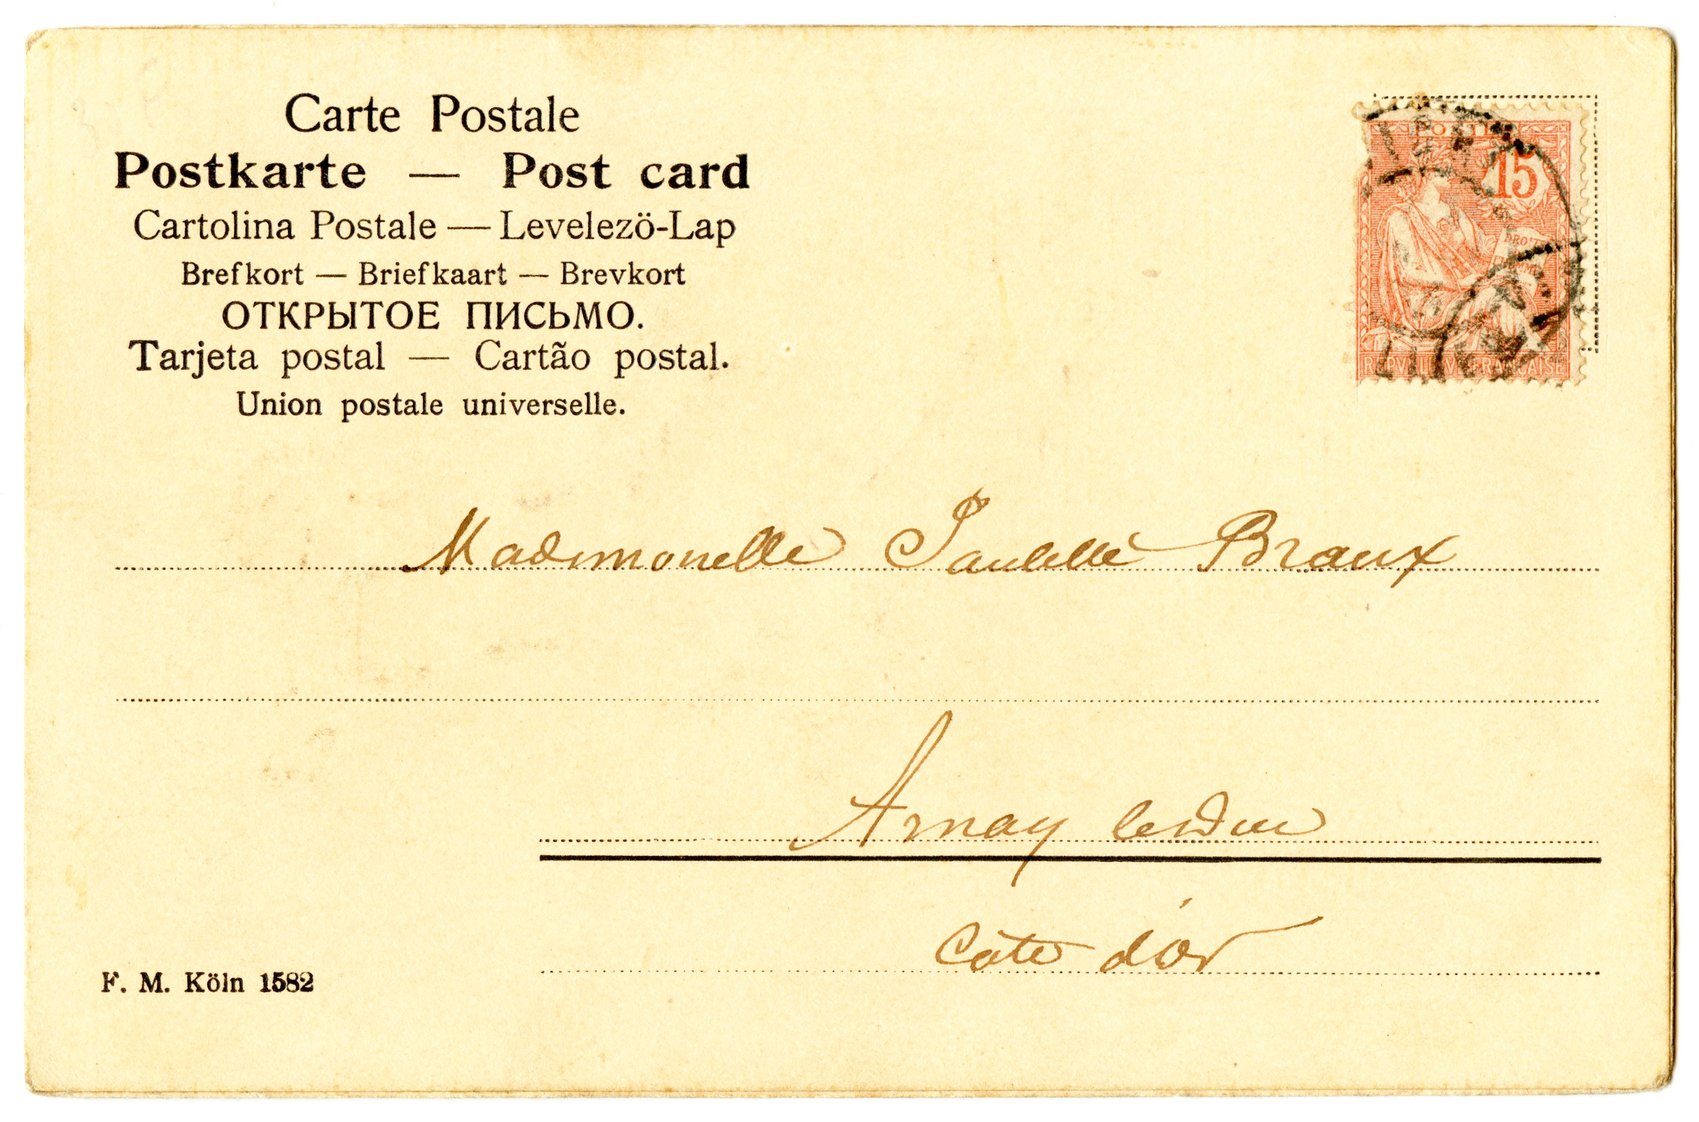 Carte Postale
Postkarte — Post card
Cartolina Postale — Levelezö-Lap
Brefkort — Briefkaart — Brevkort
ОТКРЫТОЕ ПИСЬМО.
Tarjeta postal — Cartão postal.
Union postale universelle.
15
REPUBLIQUE FRANCAISE
Mademoiselle Paulette Braux
Arnay le Duc
Côte d'Or
F. M. Köln 1582